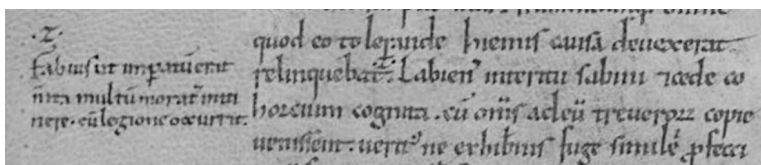 ·τ·
Fabius ut imꝑatū erat
n̄ ita multū morat᾽ in iti
nere· cū legione occurrit·
quod eo tolerande hiemis causa devexerat
relinquebat· Labien᾽ interitu sabini ⁊ cede co
hortium cognita · cū om̄s ad eū treverorꝝ copie
venissent· verit᾽ ne ex hib̄nis fuge similē ꝓfecti